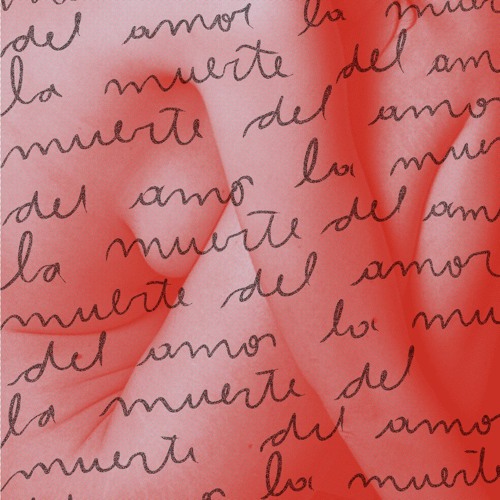 del amor la muer
la muerte del am
muerte del amo
del amo la mue
la muerte del am
muerte del amor
del amor la mu
la muerte del
muerte del amo
la muerte